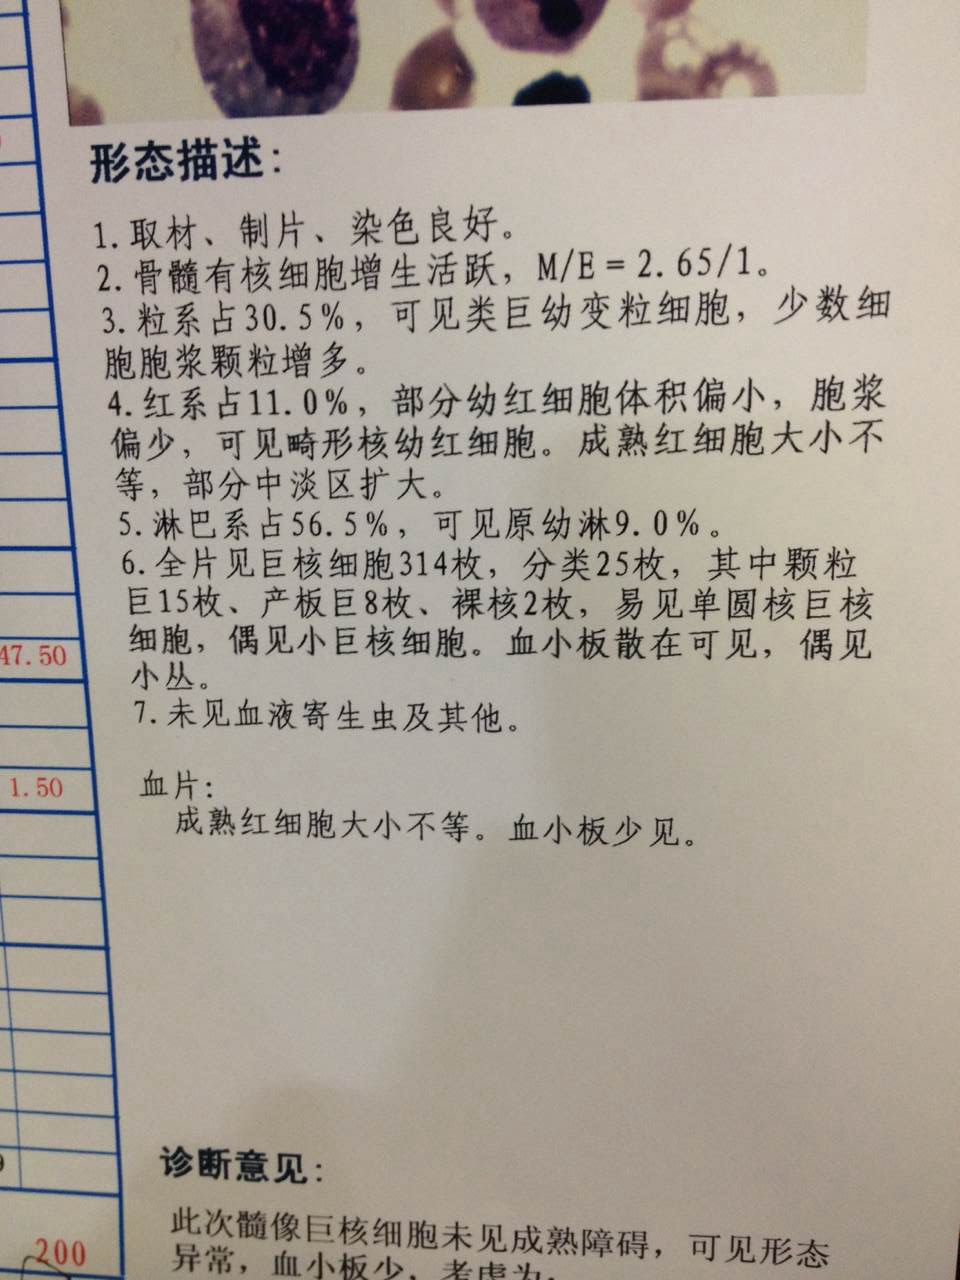 形态描述：
1. 取材、制片、染色良好。
2. 骨髓有核细胞增生活跃，M/E = 2.65/1。
3. 粒系占30.5%，可见类巨幼变粒细胞，少数细
胞胞浆颗粒增多。
4. 红系占11.0%，部分幼红细胞体积偏小，胞浆
偏少，可见畸形核幼红细胞。成熟红细胞大小不
等，部分中淡区扩大。
5. 淋巴系占56.5%，可见原幼淋9.0%。
6. 全片见巨核细胞314枚，分类25枚，其中颗粒
巨15枚、产板巨8枚、裸核2枚，易见单圆核巨核
细胞，偶见小巨核细胞。血小板散在可见，偶见
47.50
小丛。
7. 未见血液寄生虫及其他。
血片：
1.50
成熟红细胞大小不等。血小板少见。
诊断意见：
此次髓像巨核细胞未见成熟障碍，可见形态
200
异常，血小板少，考虑为：